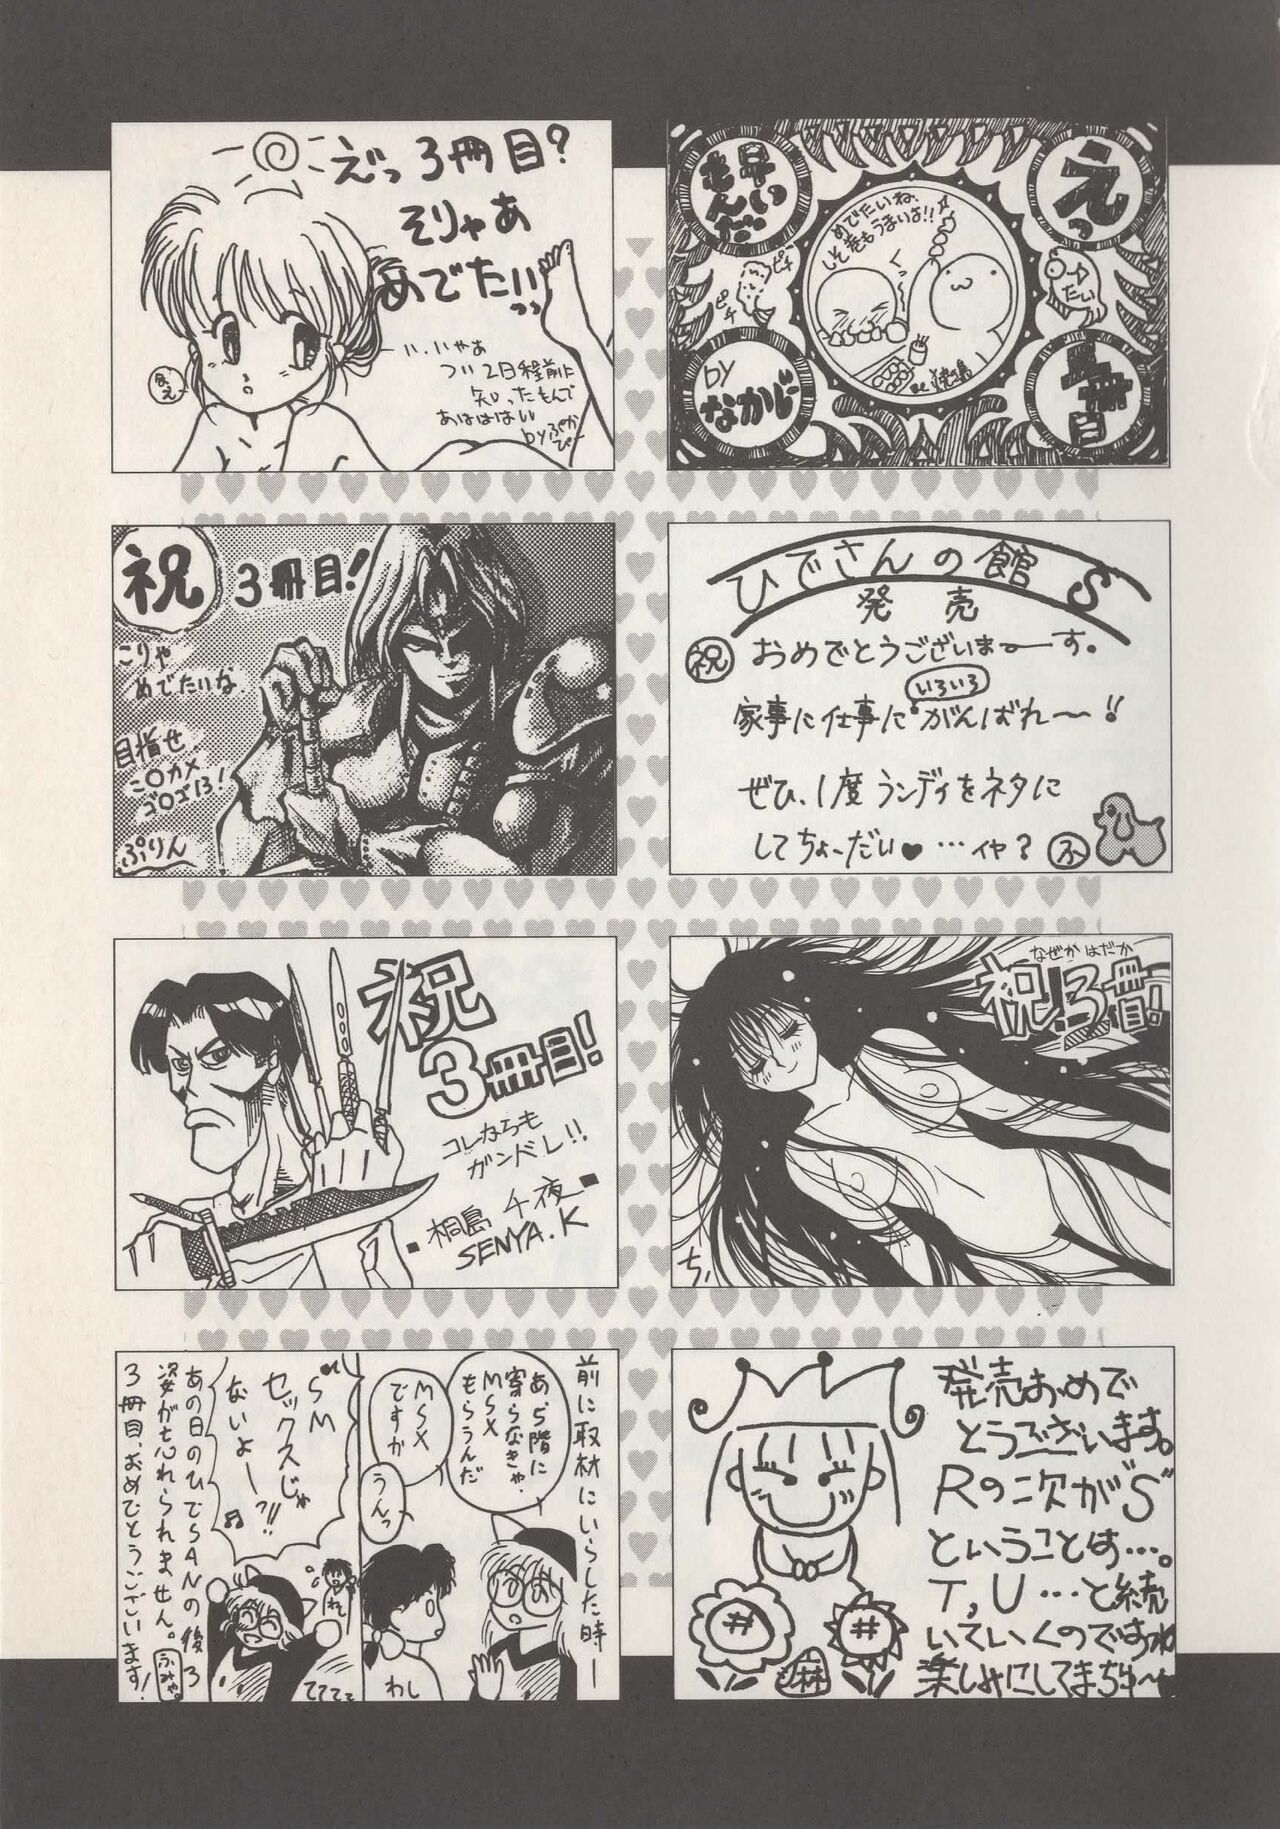 えっ3冊目?
そりゃあ
めでたいっっ
い、いやあ
つい2日程前に
知ったもんで
あはははい
byぷかぴー
えっ
3冊目
早い
もんだ
by
なかじ
めでたいね、
しそ巻もうまいよ!!
くっ
ピチ
ピチ
たい
祝
3冊目!
こりゃ
めでたいな
目指せ
こ○カメ
ゴ○ゴ13!
ぷりん
ひでさんの館 S
発売
祝 おめでとうございまーす。
いろいろ
家事に仕事にがんばれ〜!!
ぜひ、1度ランディをネタに
してちょーだい♥…イヤ?
祝
3冊目!
コレからも
ガンバレ!!
桐島 千夜
SENYA.K
なぜかはだか
祝!3冊目!
ち.
前に取材にいらした時―
あ、5階に
寄らなきゃ、
MSX
もらうんだ
MSX
ですか
うんっ
わし
"SM
セックスじゃ
ないよー?!!
♫
われ
てててて
あの日のひでSANの後ろ
姿が忘れられません。
3冊目、おめでとうございます!
ふみゃ。
発売おめで
とうございます。
Rの次が"S"
ということは…。
T,U…と続
いていくのですね
楽しみにしてまちゅ〜
麻